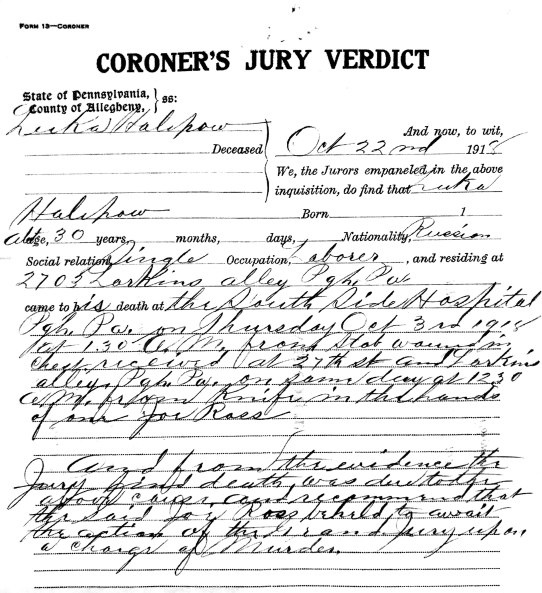 FORM 13—CORONER
CORONER'S JURY VERDICT
State of Pennsylvania,
County of Allegheny, } ss:
Luka Halspow
Deceased
And now, to wit,
Oct 22nd 1918
We, the Jurors empaneled in the above
inquisition, do find that Luka
Halspow Born 1
Age, abt 30 years, months, days, Nationality, Russian
Social relation, Single Occupation, Laborer, and residing at
2703 Larkins alley Pgh. Pa.
came to his death at the South Side Hospital
Pgh. Pa. on Thursday Oct 3rd 1918
at 1.30 A.M. from Stab wound in
chest received at 27th st and Larkins
alley, Pgh. Pa. on same day at 12.30
A.M. from Knife in the hands
of one Joe Ross
And from the evidence the
Jury find death was due to the
above cause and recommend that
the said Joe Ross be held to await
the action of the Grand Jury upon
a charge of Murder